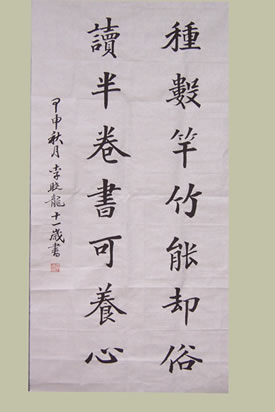 種數竿竹能却俗
讀半卷書可養心
甲申秋月李政龍十一歲書